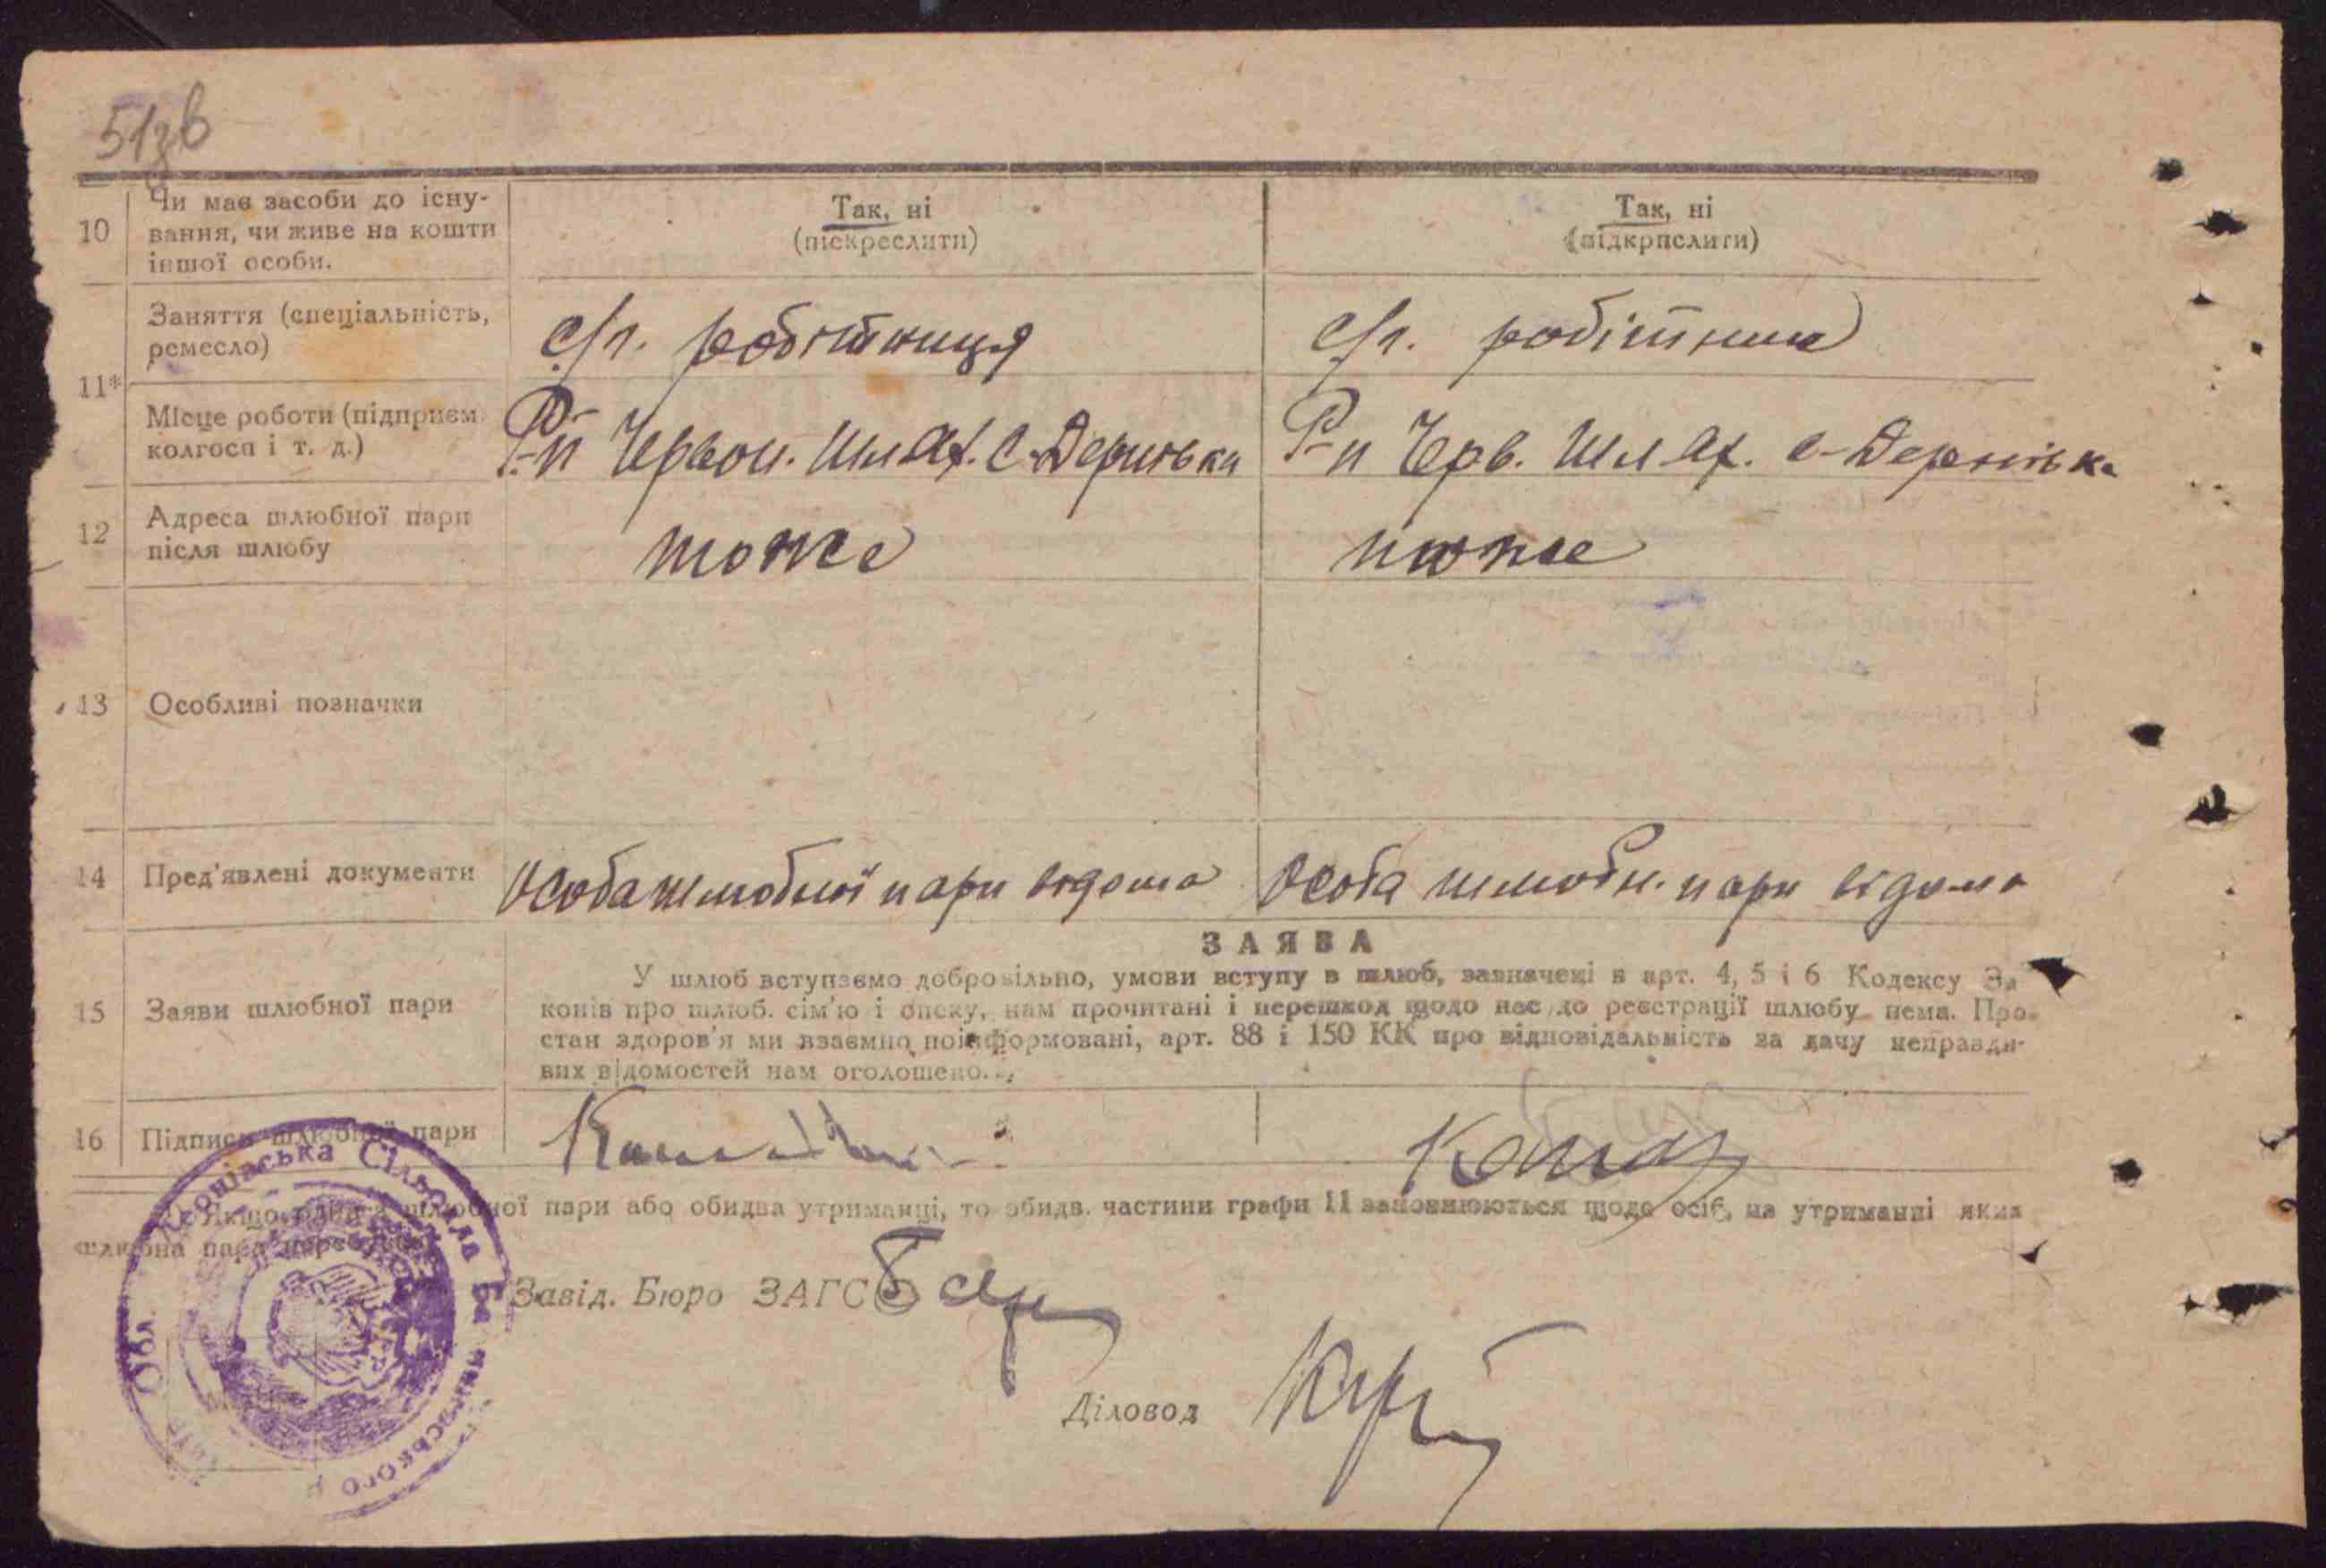 51зв
10 Чи має засоби до існу-
вання, чи живе на кошти
іншої особи.
Так, ні
(піскреслити)
Так, ні
(підкрпслити)
11*
Заняття (спеціальність,
ремесло)
с/г. робітниця
с/г. робітник
Місце роботи (підприєм.
колгосп і т. д.)
Р-п Червон. Шлях. с. Деринька
Р-п Черв. Шлях. с-Деренівка
12 Адреса шлюбної пари
після шлюбу
тоже
тоже
13 Особливі позначки
14 Пред'явлені документи
Особа шлюбної пари відома
Особа шлюбн. пари відома
ЗАЯВА
15 Заяви шлюбної пари
У шлюб вступаємо добровільно, умови вступу в шлюб, зазначені в арт. 4, 5 і 6 Кодексу За
конів про шлюб. сім'ю і опеку, нам прочитані і перешкод щодо нас до реєстрації шлюбу нема. Про
стан здоров'я ми взаємно поінформовані, арт. 88 і 150 КК про відповідальність за дачу неправди-
вих відомостей нам оголошено.
16 Підписи шлюбної пари
Якщо один з шлюбної пари або обидва утриманці, то обидв. частини графи 11 заповнюються щодо осіб, на утриманні яких
шлюбна пара перебуває
Завід. Бюро ЗАГС
Діловод
Сільрада
Обл.